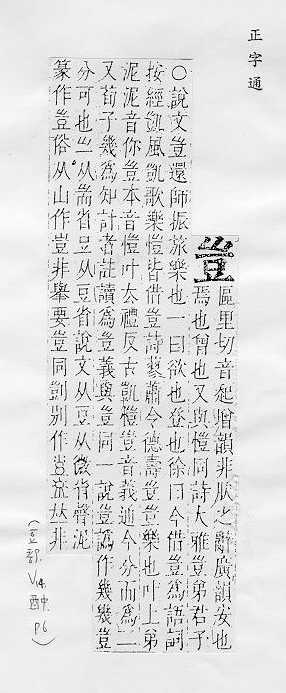 正字通
豈
區里切音起增韻非肰之辭廣韻安也
焉也曾也又與愷同詩大雅豈弟君子
○說文豈還師振旅樂也一曰欲也登也徐曰今借豈爲語詞
按經凱風凱歌樂愷皆借豈詩蓼蕭令德壽豈豈樂也叶上弟
泥泥音你豈本音愷叶去禮反古凱愷豈音義通今分而爲二
又荀子幾爲知計者註讀爲豈義與豈同一說豈譌作幾幾豈
分可也从耑省豆从豆省說文从豆从微省聲泥
篆作豈俗从山作豈非舉要豈同剴別作𠀤非
(豆部. 酉 P6)